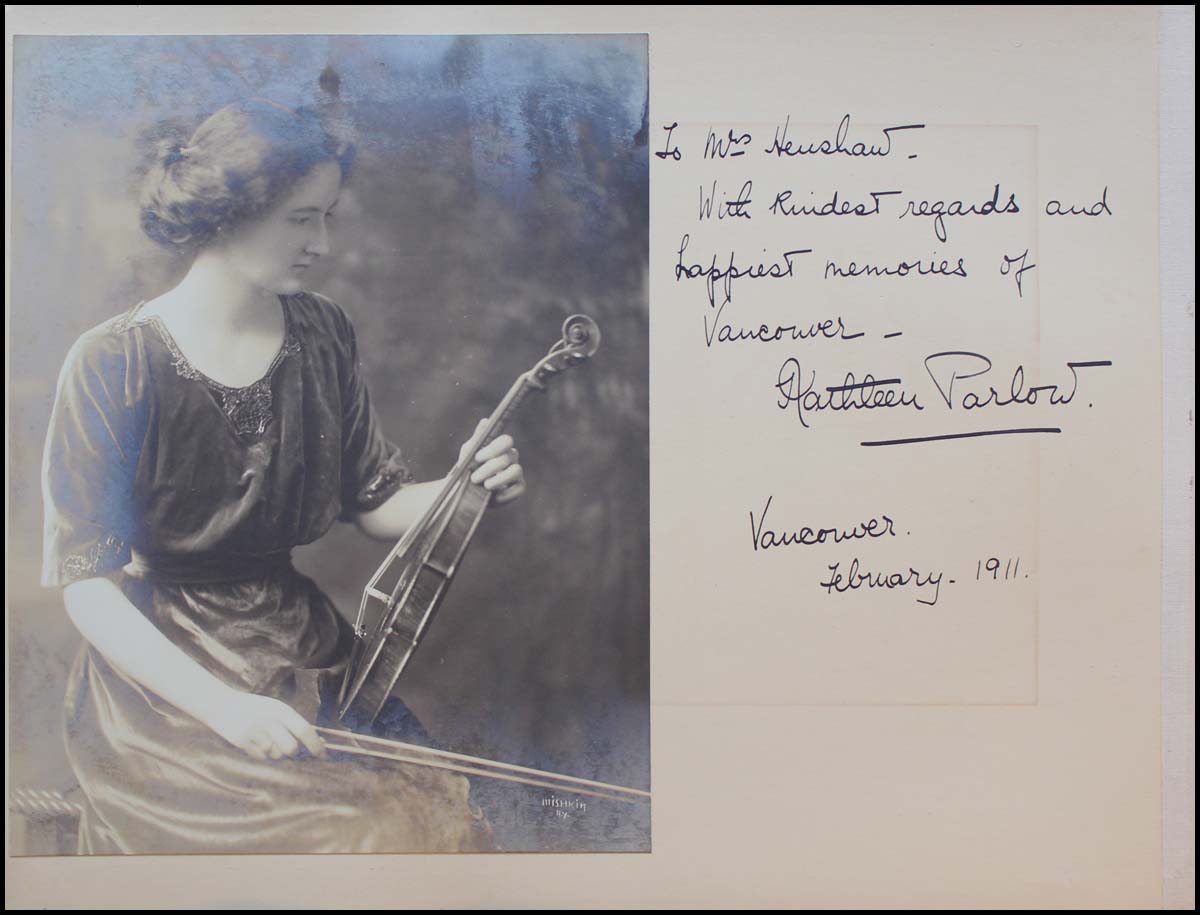 To Mrs Henshaw -
With kindest regards and
happiest memories of
Vancouver -
Kathleen Parlow.
Vancouver.
February - 1911.
MISHKIN
NY.